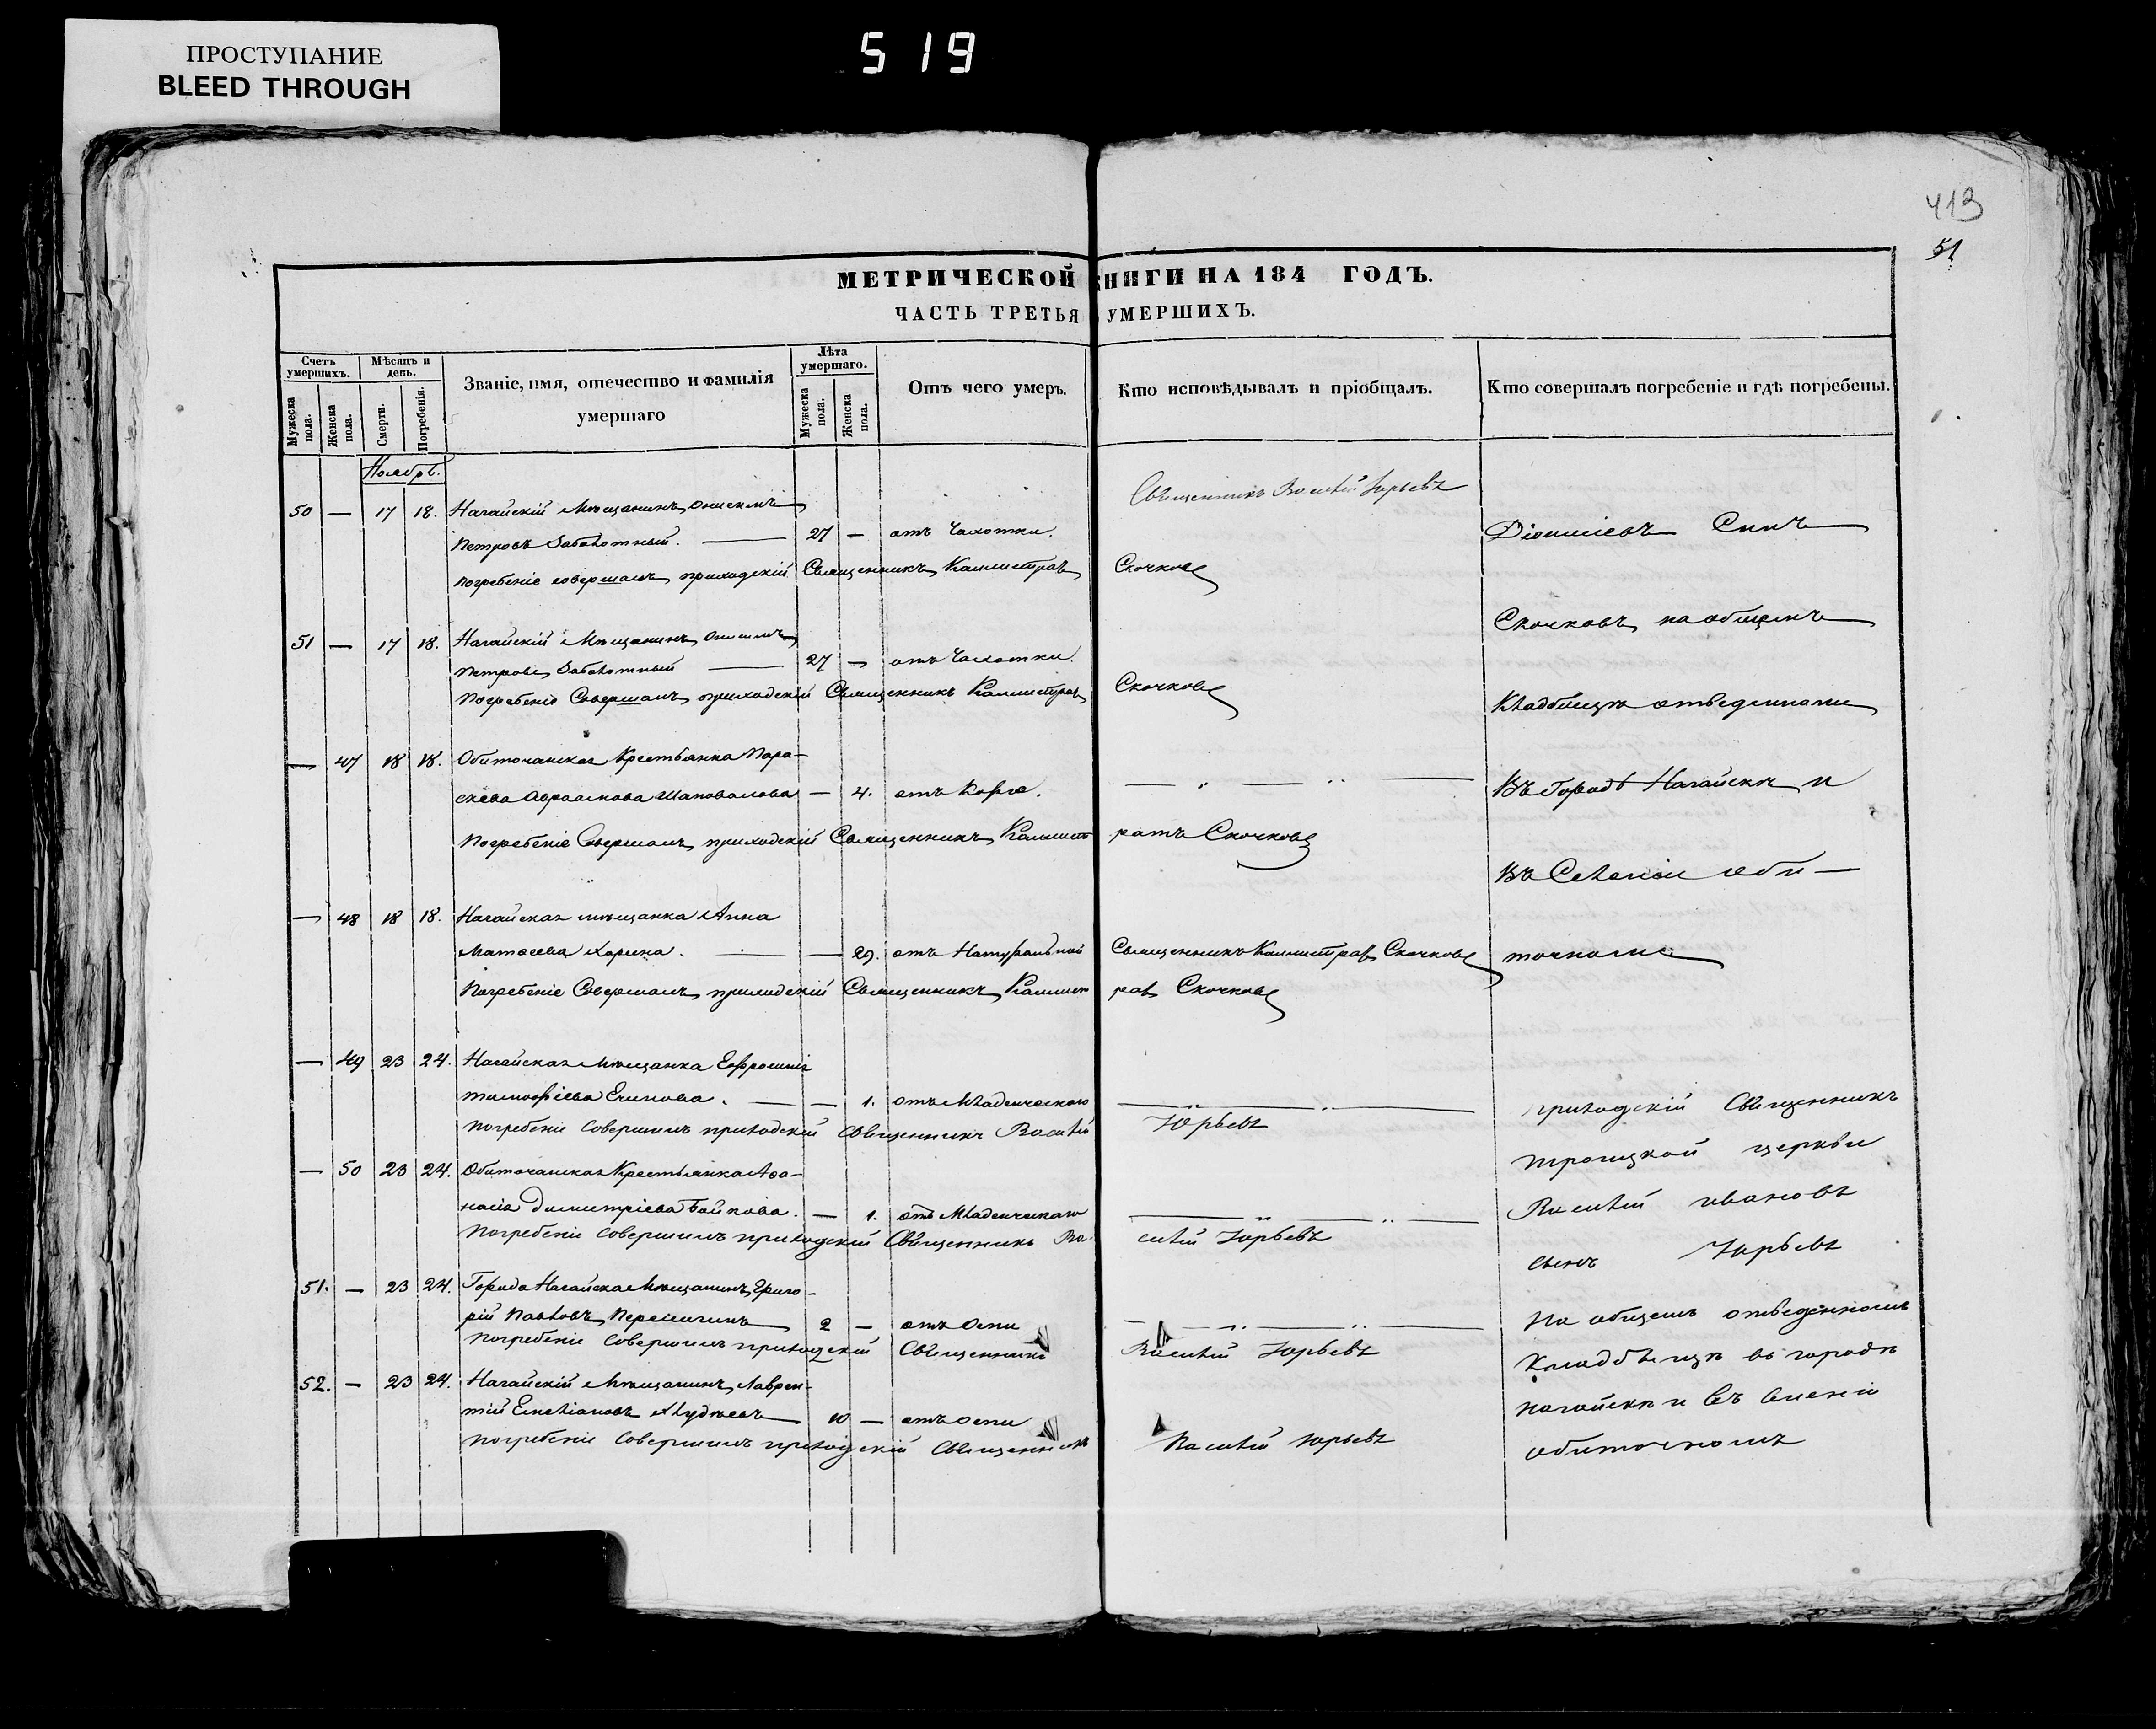 ПРОСТУПАНИЕ
BLEED THROUGH
519
413
51
МЕТРИЧЕСКОЙ КНИГИ НА 184 ГОДЪ.
ЧАСТЬ ТРЕТЬЯ УМЕРШИХЪ.
Счетъ умершихъ.
Мѣсяцъ и день.
Званіе, имя, отечество и фамилія умершаго
Лѣта умершаго.
Отъ чего умеръ.
Кто исповѣдывалъ и пріобщалъ.
Кто совершалъ погребеніе и гдѣ погребены.
Мужеска пола.
Женска пола.
Смерти.
Погребенія.
Мужеска пола.
Женска пола.
Ноябрь.
Священникъ Василій Юрьевъ
50 — 17 18. Нагайскій Мѣщанинъ Онисимъ
Петровъ Заболотный. — 27 — отъ Чахотки.
Погребеніе совершалъ приходскій Священникъ Каллистратъ Скочковъ
51 — 17 18. Нагайскій Мѣщанинъ Онисимъ
Петровъ Заболотный — 27 — отъ Чахотки.
Погребеніе Совершалъ приходскій Священникъ Каллистратъ Скочковъ
— 47 18 18. Обиточанская Крестьянка Пара-
скева Авраамова Шаповалова — 4. отъ Корю.
Погребеніе Совершалъ приходскій Священникъ Каллист ратъ Скочковъ
— 48 18 18. Нагайская мѣщанка Анна
Матвеева — 29. отъ Натуральной Священникъ Каллистратъ Скочковъ
Погребеніе Совершалъ приходскій Священникъ Каллист ратъ Скочковъ
— 49 23 24. Нагайская Мѣщанка Ефросинія
тимофіева — 1. отъ Младенческаго
Погребеніе Совершилъ приходскій Священникъ Василій Юрьевъ
— 50 23 24. Обиточанская Крестьянка Афа-
насія Димитріева Бойкова. — 1. отъ Младенческаго
Погребеніе Совершилъ приходскій Священникъ Ва силій Юрьевъ
51. — 23 24. Города Нагайска Мѣщанинъ Григо-
рій Павловъ 2 — отъ Оспи
Погребеніе Совершилъ приходскій Священникъ Василій Юрьевъ
52. — 23 24. Нагайскій Мѣщанинъ Лаврен-
тій Емельяновъ 10 — отъ оспи
Погребеніе Совершилъ приходскій Священникъ Василій Юрьевъ
Діонисіевъ Синъ
Скочковъ на общемъ
Кладбищѣ отведенномъ
Въ Городѣ Нагайскѣ и
Въ Селеніи Оби—
точномъ
приходскій Священникъ
троицкой церкви
Василій ивановъ
сынъ Юрьевъ
На общемъ отведенномъ
Кладбищѣ въ городѣ
нагайскѣ и въ селеніи
обиточномъ